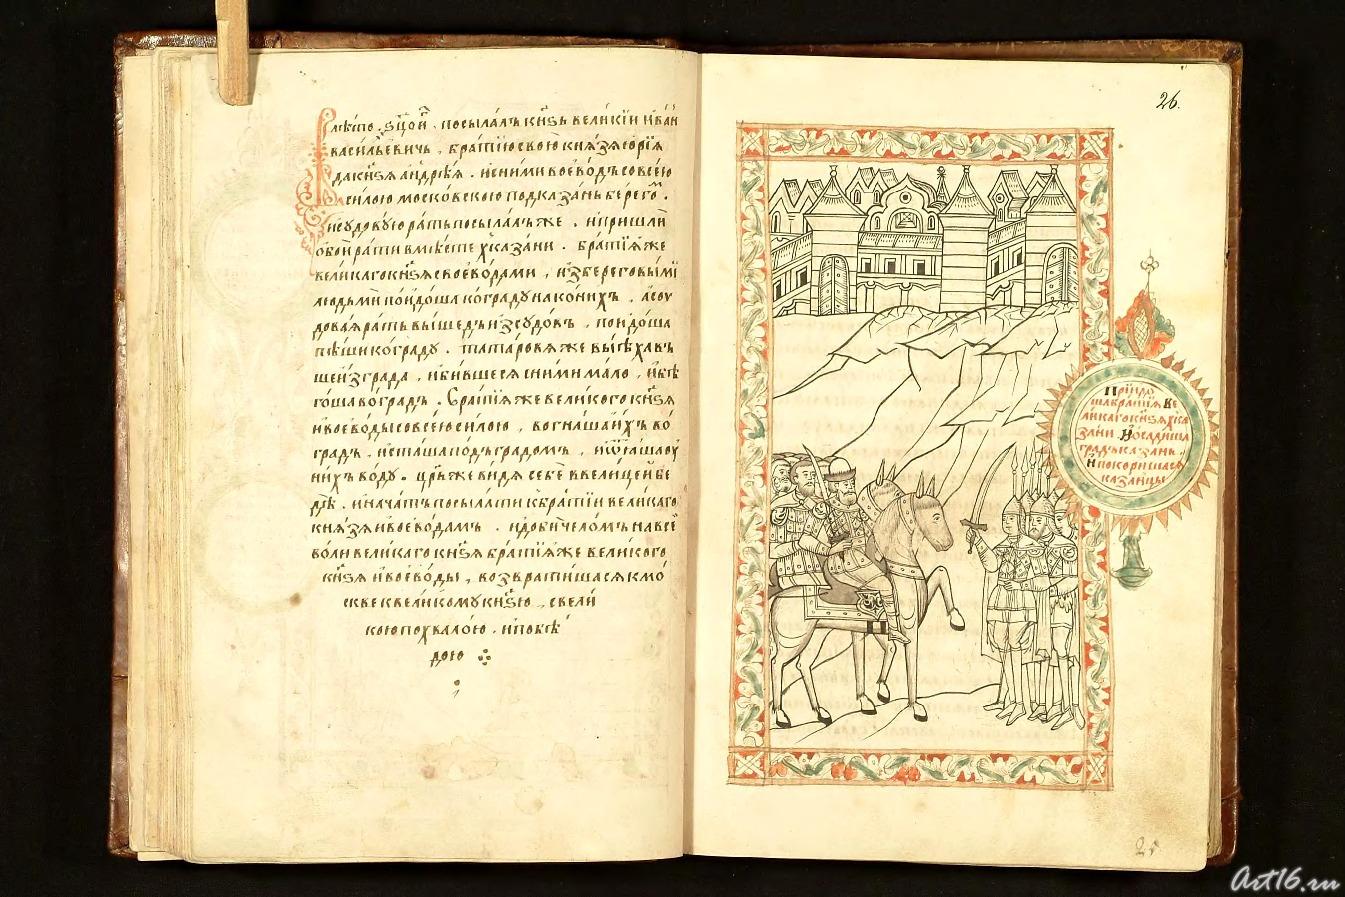 посылалъ кн҃зь великїи иван
васильевичь, братїю свою князя юрїя
да кн҃зя андрѣя. и с ними воеводъ со всею
силою московскою под казань берего.
и судовую рать посылалъ же, и пришли
обои рати вмѣсте х казани. братїя же
великаго кн҃зя с воеводами, и з береговыми
людьми поидоша ко граду на конихъ, а су
довая рать вышедъ из судовъ, поидоша
пѣши ко граду. татаровя же выѣхавъ
шеи з града, и бившеся с ними мало, и бѣ
гоша во градъ. Братїя же великого кн҃зя
и воеводы со всею силою, вогнаша ихъ во
градъ. и сташа под градомъ, и ѿняша оу
нихъ воду. ц҃рь же видя себе в велицеи бе
дѣ. и начатъ посылати к братїи великаго
князя и воеводамъ. и доби челомъ на всеи
воли великаго кн҃зя братїя же великого
кн҃зя и воеводы, возвратишася к мо
скве к великому кн҃зю, с вели
кою похвалою. и побѣ
дою
26.
Прїидо
ша братїя ве
ликаго кн҃зя х ка
зани и осадиша
градъ казань.
и покоришася
казанцы
25
Art16.ru